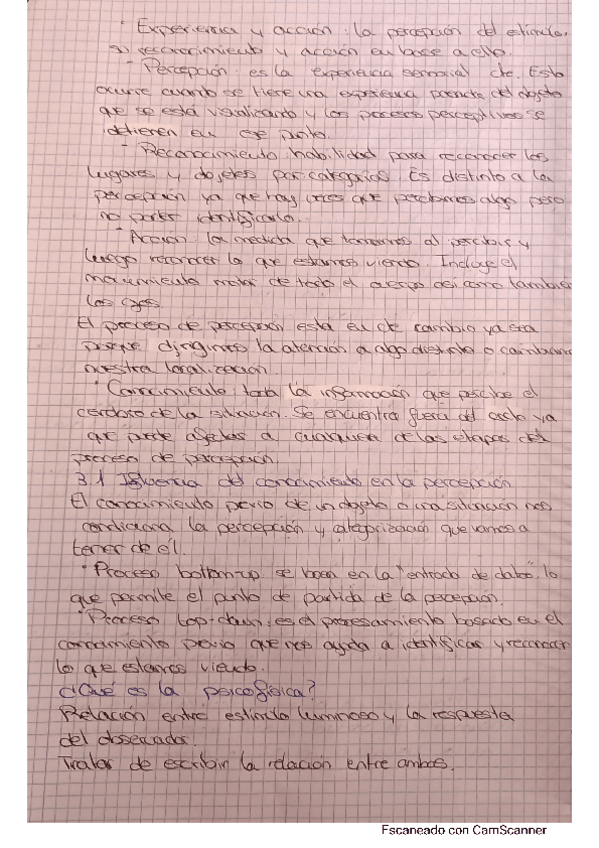 · Experiencia y acción: la percepción del estímulo.
reconocimiento y acción en base a ello.
· Percepción: es la experiencia sensorial de. Esto
ocurre cuando se tiene una experiencia del objeto
que se está visualizando y los procesos perceptivos se
detienen en ese punto.
· Reconocimiento: habilidad para reconocer los
lugares y objetos por categorías. Es distinto a la
percepción ya que hay veces que percibimos algo pero
no poder identificarlo.
· Acción: la medida que tomamos al percibir y
luego reconocer lo que estamos viendo. Incluye el
movimiento motor de todo el cuerpo así como también
los ojos.
El proceso de percepción está en de cambio ya sea
porque dirigimos la atención a algo distinto o cambiamos
nuestra localización.
· Conocimiento: toda la información que percibe el
de la situación. Se encuentra fuera del ya
que puede afectar a cualquiera de las etapas del
proceso de percepción.
3.1 Influencia del conocimiento en la percepción
El conocimiento previo de un objeto o una situación nos
condiciona la percepción y categorización que vamos a
tener de él.
· Proceso bottom-up: se basa en la "entrada de datos", lo
que permite el punto de partida de la percepción.
· Proceso top-down: es el procesamiento basado en el
conocimiento previo que nos ayuda a identificar y reconocer
lo que estamos viendo.
¿Qué es la psicofísica?
Relación entre estímulo luminoso y la respuesta
del observador.
Tratar de escribir la relación entre ambos.
Escaneado con CamScanner